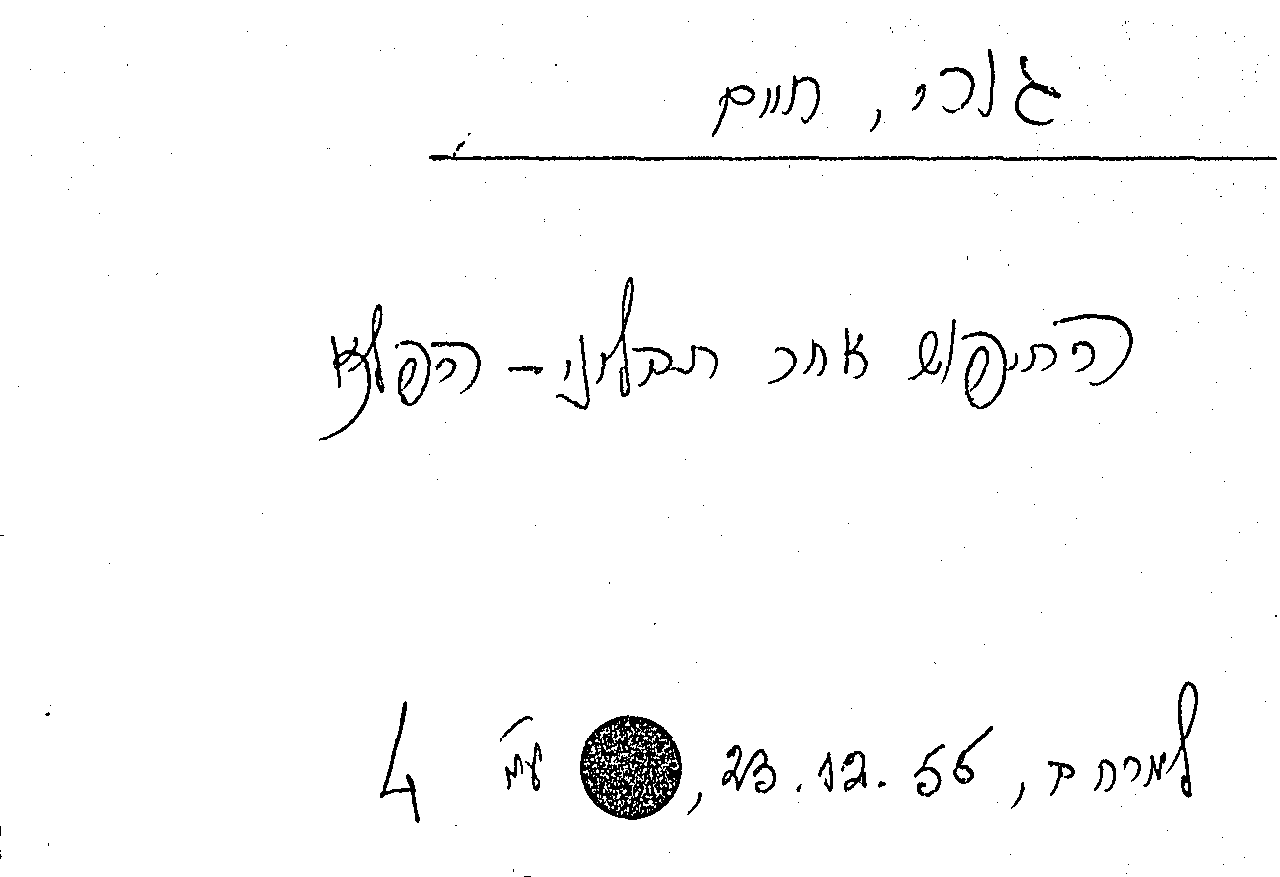 גורי, חיים
החיפוש אחר תבליני-הפלא
למרחב, 23.12.55, עמ' 4